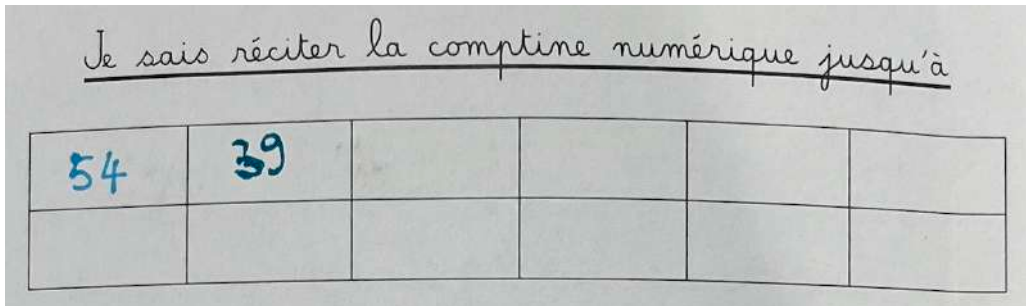 Je sais réciter la comptine numérique jusqu'à
54 39